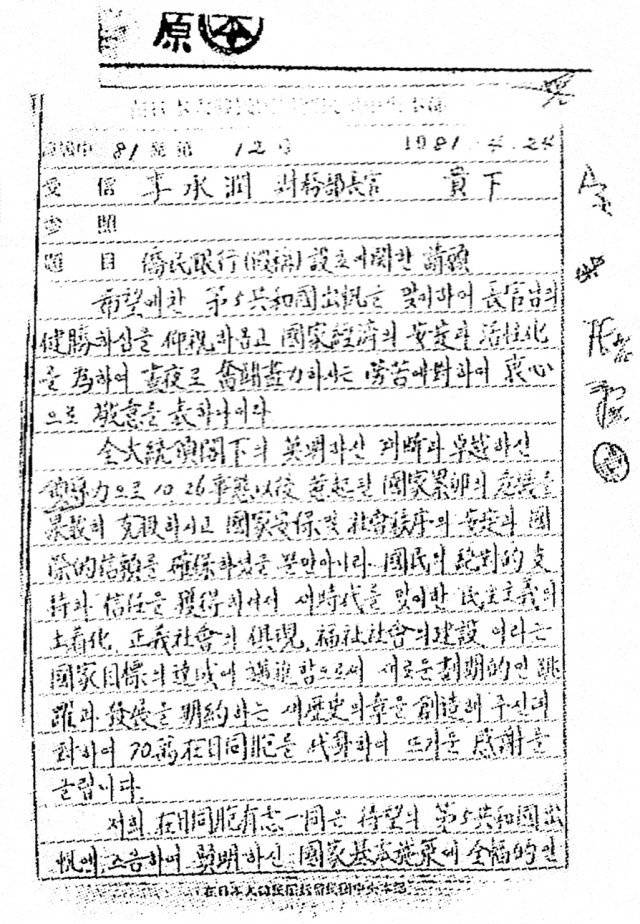 原本
81 第 12 号 1981.4.24
受信 李承潤 財務部長官 貴下
参照
題目 僑民銀行(假稱)設立에関한 請願
希望에찬 第5共和國出帆을 맞이하여 長官님의
健勝하심을 仰祝하옵고 國家経済의 安定과 活性化
을 為하여 晝夜로 奮闘盡力하시는 勞苦에對하여 衷心
으로 敬意를 表하나이다
全大統領閣下의 英明하신 判断과 卓越하신
領導力으로 10.26事態以後 惹起된 國家累卵의 危機를
果敢히 克服하시고 國家安保및 社會秩序의 安定과 國
際的信賴를 確保하였을 뿐만아니라 國民의 絶對的支
持와 信任을 獲得하셔서 새時代를 맞이한 民主主義의
土着化, 正義社會의 俱現, 福祉社會의建設 이라는
國家目標의 達成에 邁進함으로써 새로운劃期的인 跳
躍과 發展을 期約하는 새歷史의章을 創造해 주신데
對하여 70萬在日同胞를 代身하여 뜨거운 感謝를
드립니다.
저희 在日同胞有志一同은 待望의 第5共和國出
帆에 즈음하여 賢明하신 國家基本施策에 全幅的인
在日本大韓民國居留民團中央本部